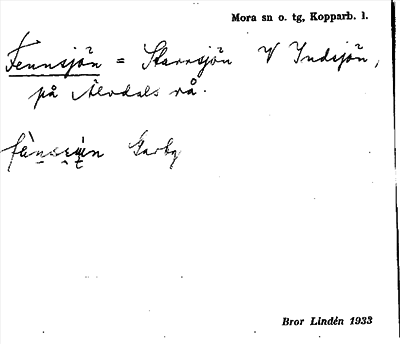 Mora sn o. tg, Kopparb. l.
Fennsjön = Starrsjön V Indsjön,
på Älvdals rå.
Garby
Bror Lindén 1933